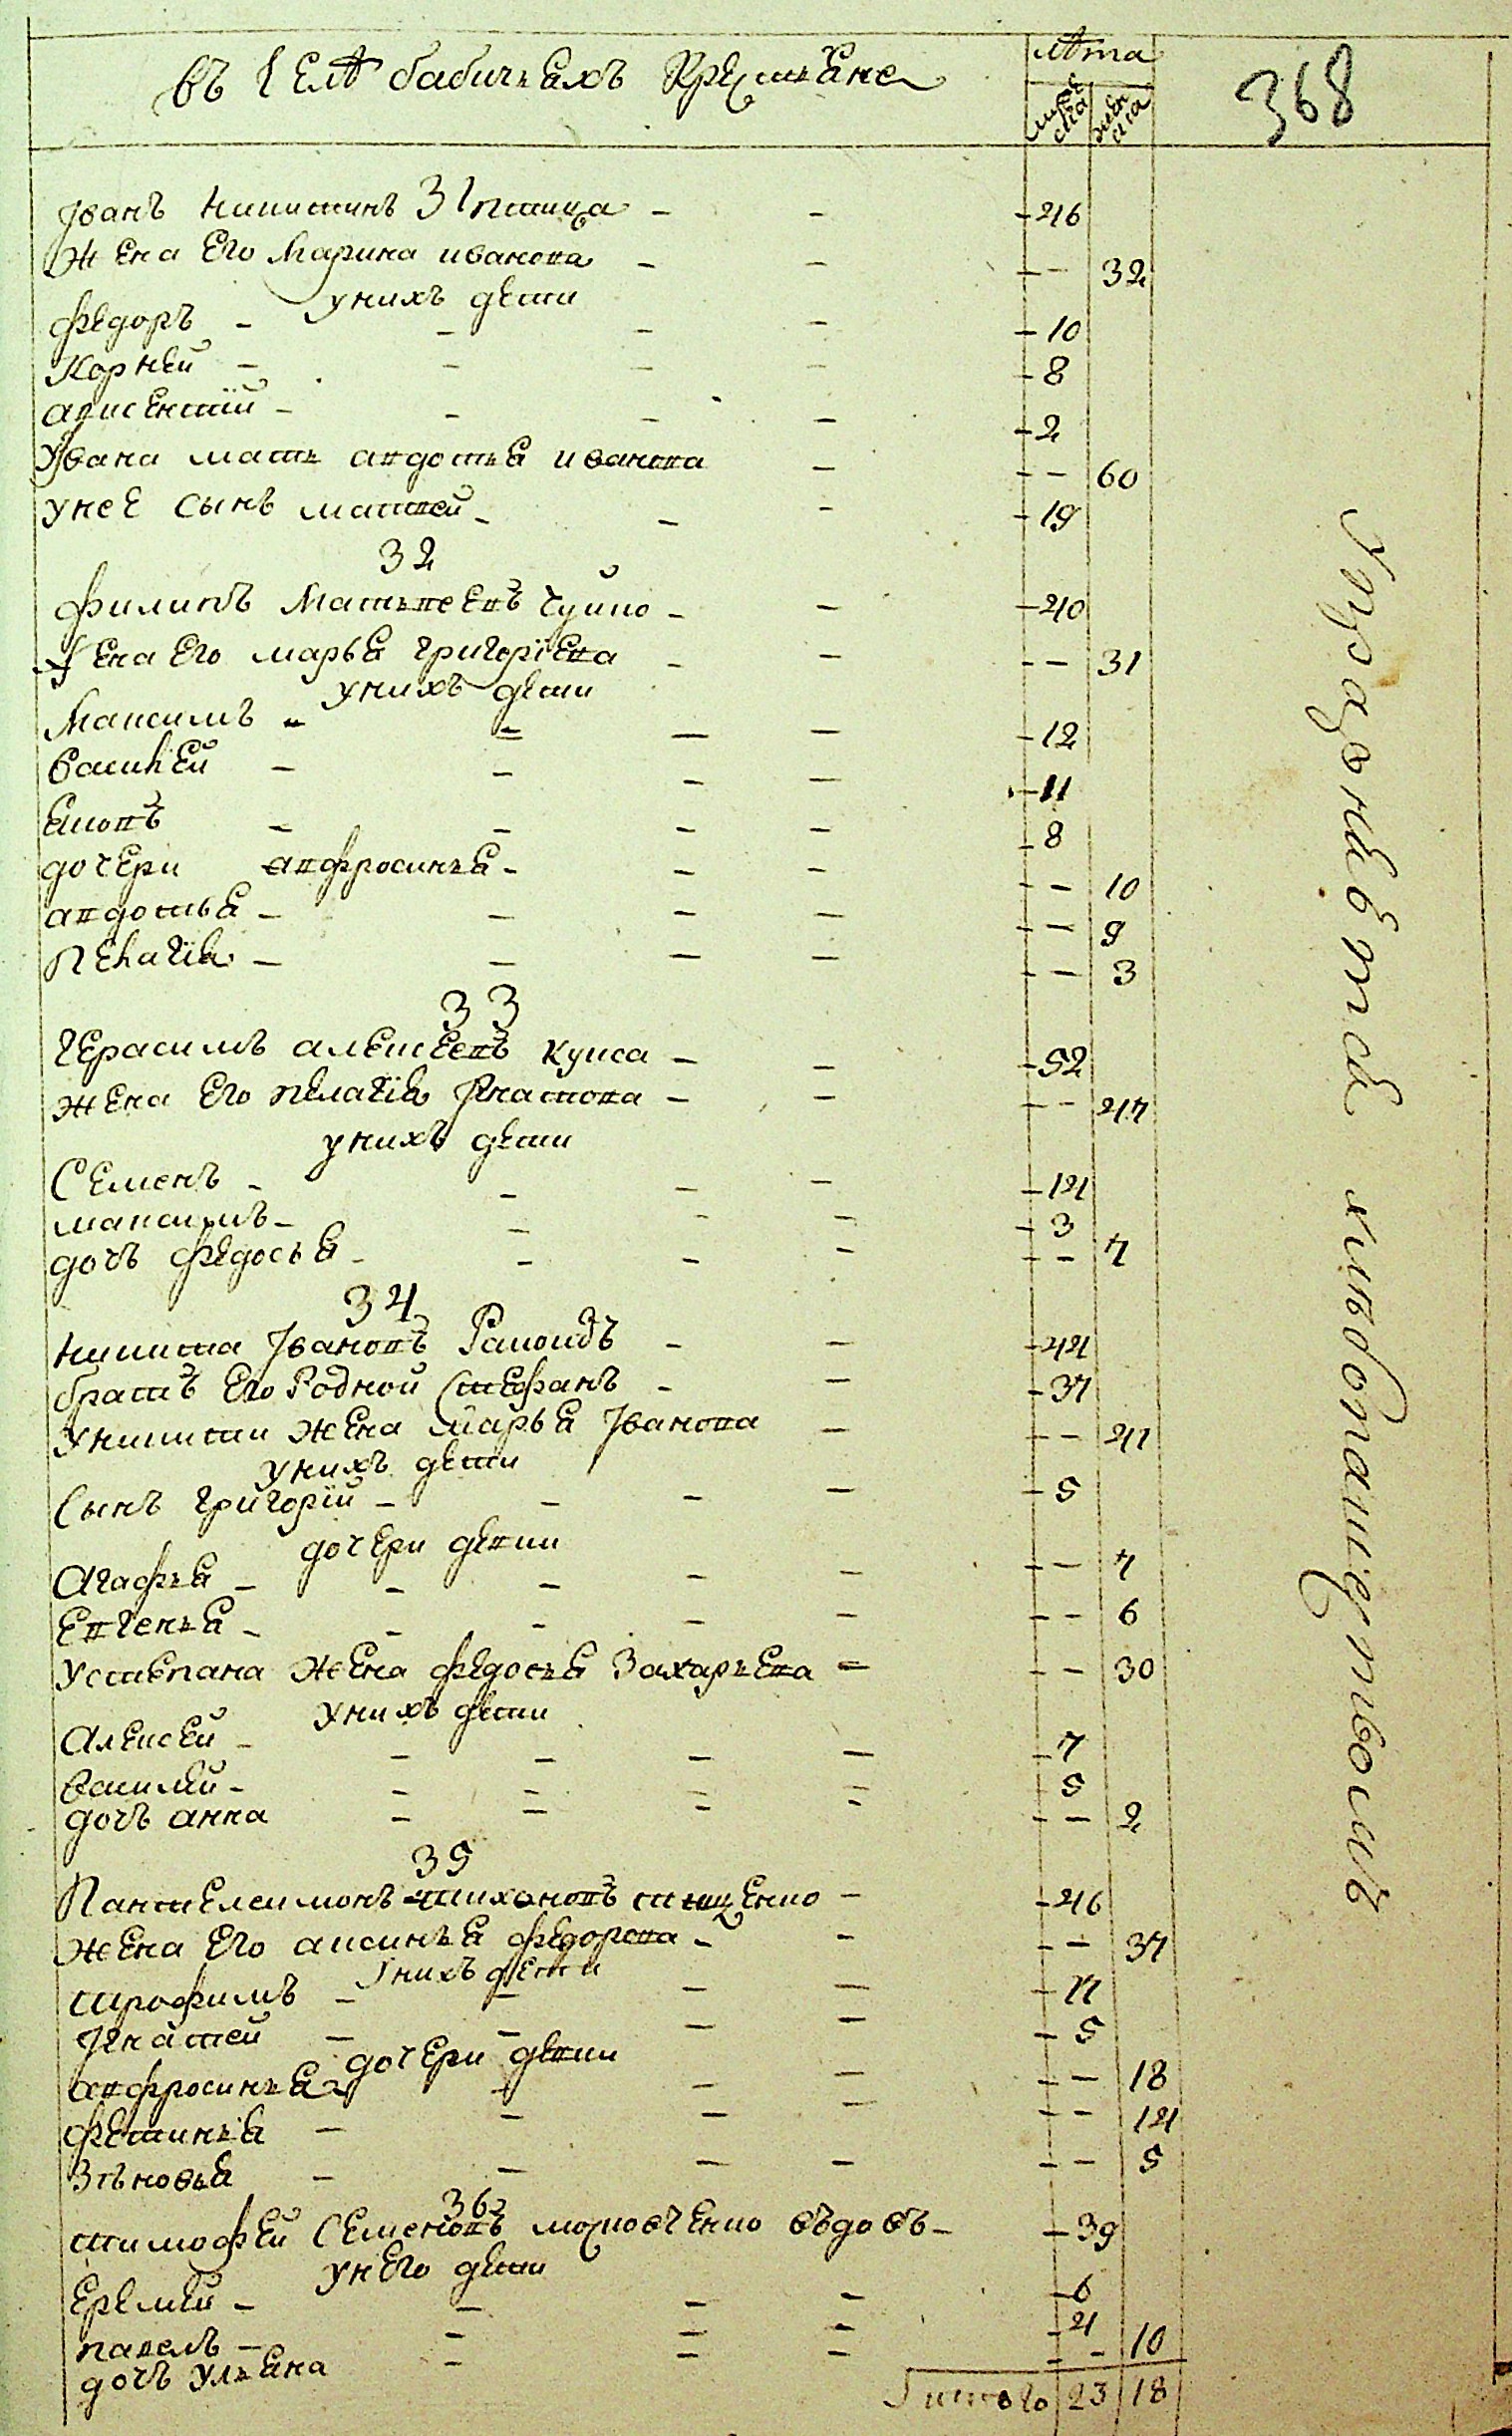 въ селѣ бабичеахъ Крестьяне
лѣта
муже ска
жен ска
368
Іванъ никитинъ 31 птица - - - 46
жена Его Марина иванова - - - - 32
унихъ дети
федоръ - - - - - 10
Корней - - - - - 8
арисентїй - - - - - 2
Уївана мать авдотья иванова - - - 60
унеё сынъ матвей - - - - 19
32
филипъ Матьвеевъ чуйко - - - 40
жена Его марья григорїева - - - - 31
унихъ дети
Максимъ - - - - - 12
василей - - - - - 11
Яковъ - - - - - 8
дочери апфросинья - - - - - 10
авдотья - - - - - - 9
пелагїя - - - - - - 3
33
герасимъ алексеевъ кукса - - - 52
жена Его пелагїя Игнатова - - - - 47
унихъ дети
Семенъ - - - - - 14
максимъ - - - - - 3
дочъ федосья - - - - - - 7
34
никита Івановъ Ракоидъ - - - 44
братъ Его Родной Стефанъ - - - 37
Уникити жена Марья Іванова - - - 41
унихъ дети
Сынъ григорїй - - - - - 5
дочери девки
Агафья - - - - - - - 7
Евгенья - - - - - - - 6
Устепана жена федосья Захарьева - - - 30
унихъ дети
Алексей - - - - - - 7
василий - - - - - - 5
дочъ анна - - - - - - 2
35
Пантелеимонъ тихоновъ тищенко - - 46
жена Его аксинья федорова - - - - 37
унихъ дети
трофимъ - - - - - 11
Игнатей - - - - - 5
дочери девки
апфросинья - - - - - 18
фетинья - - - - - - 14
Зѣновья - - - - - - 5
36
тимофей Семеновъ московченко вѣдовъ - - 39
унЕго дети
Еремей - - - - - 6
павелъ - - - - - 4
дочъ ульяна - - - - - 10
Ітого 23 18